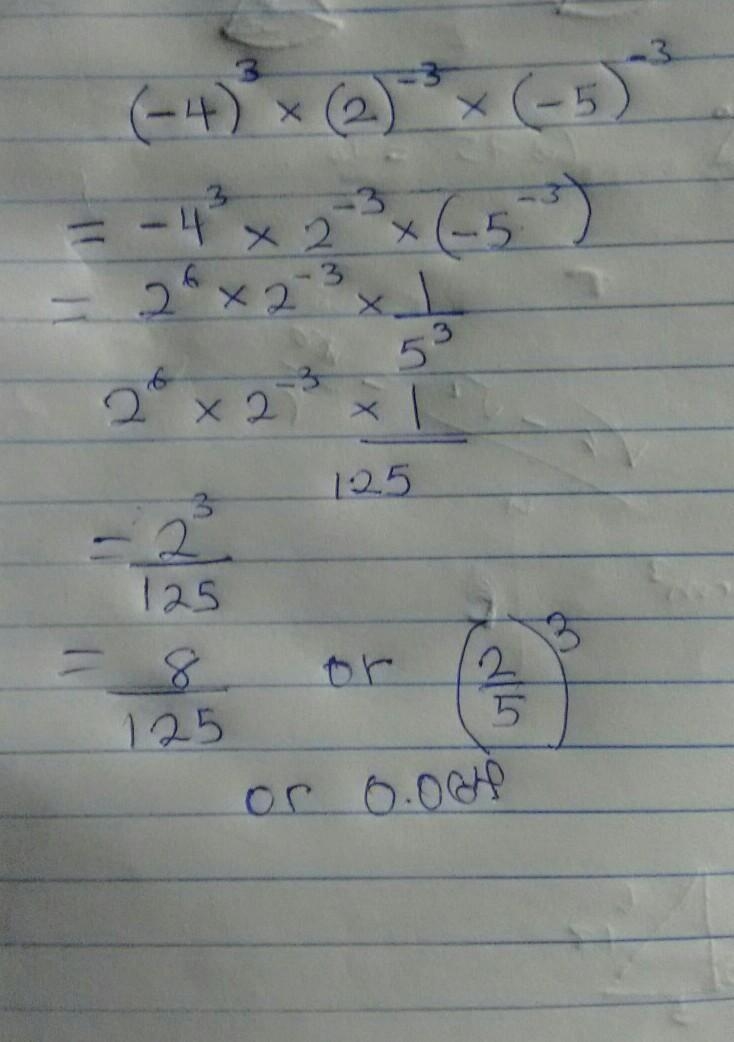 (-4)³ × (2)⁻³ × (-5)⁻³
= -4³ × 2⁻³ × (-5⁻³)
= 2⁶ × 2⁻³ × 1/5³
2⁶ × 2⁻³ × 1/125
= 2³/125
= 8/125 or (2/5)³
or